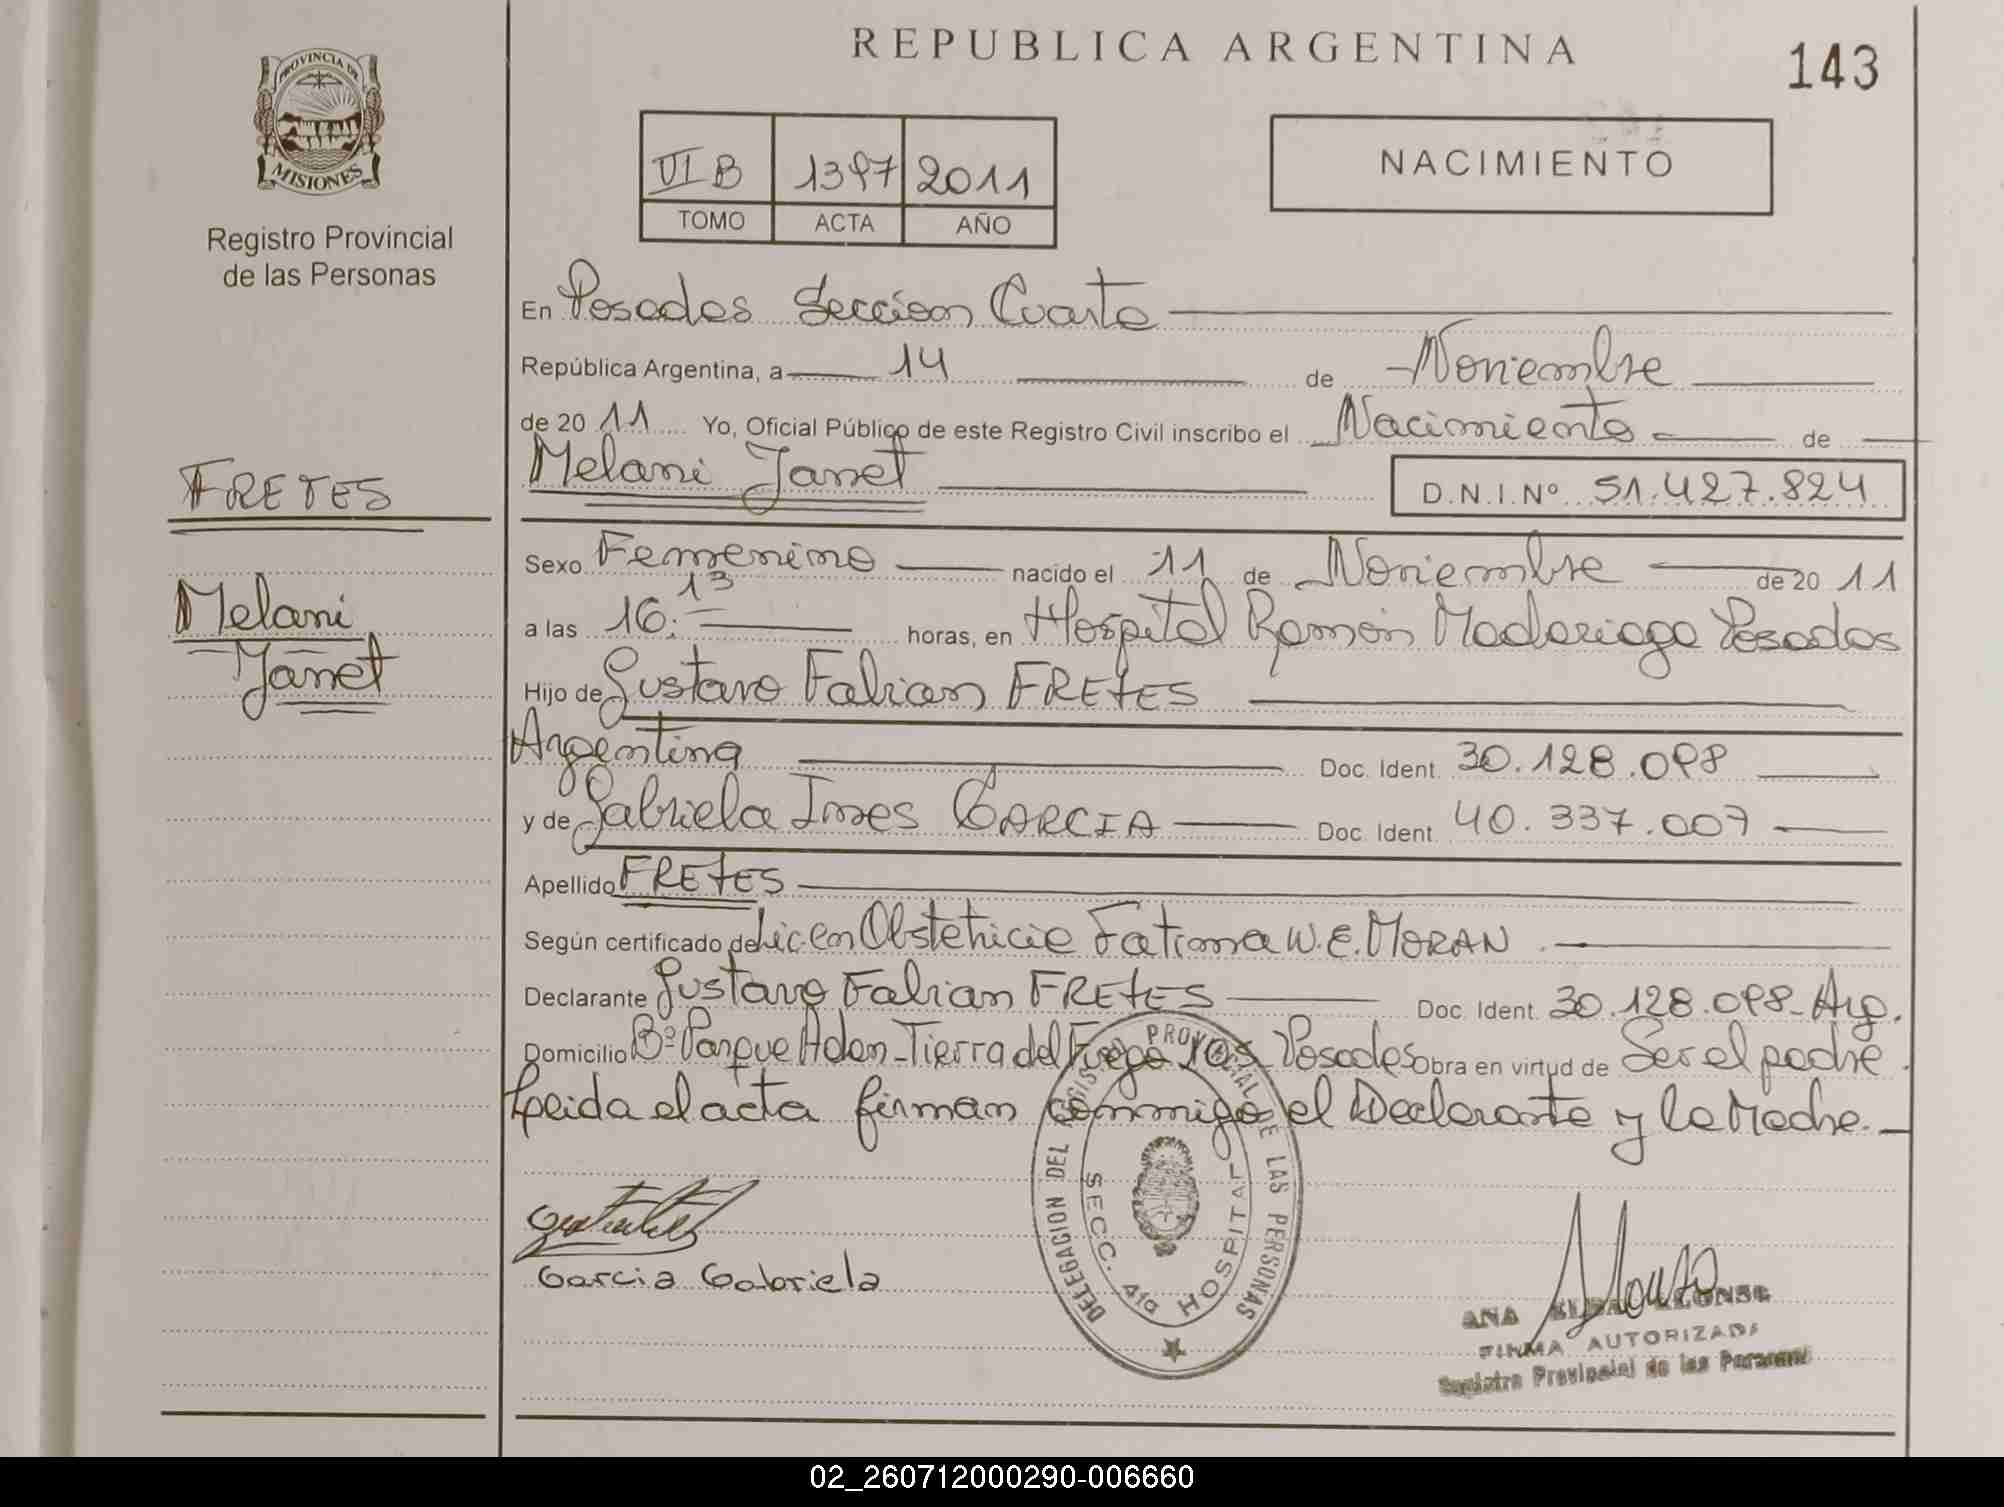 REPUBLICA ARGENTINA
143
PROVINCIA DE
MISIONES
Registro Provincial
de las Personas
VI B 1397 2011
TOMO ACTA AÑO
NACIMIENTO
En Posadas Seccion Cuarta
República Argentina, a 14 de Noviembre
de 20 11 Yo, Oficial Público de este Registro Civil inscribo el Nacimiento de
Melani Janet D.N.I.Nº 51.427.824
FRETES
Melani
Janet
Sexo Femenino nacido el 11 de Noviembre de 20 11
a las 16:13 horas, en Hospital Ramón Madariaga Posadas
Hijo de Gustavo Fabian FRETES
Argentina Doc. Ident. 30.128.098
y de Gabriela Ines GARCIA Doc. Ident. 40.337.007
Apellido FRETES
Según certificado de Lic. en Obstetricia Fatima W.E. MORAN
Declarante Gustavo Fabian FRETES Doc. Ident. 30.128.098 - Arg.
Domicilio Bº Parque Adan - Tierra del Fuego Posadas Obra en virtud de Ser el padre.
Leida el acta firman conmigo el Declarante y la Madre.
DELEGACION DEL REGISTRO PROVINCIAL DE LAS PERSONAS
SECC. 4ta HOSPITAL
Garcia Gabriela
ANA ALONSO
FIRMA AUTORIZADA
Registro Provincial de las Personas
02_260712000290-006660